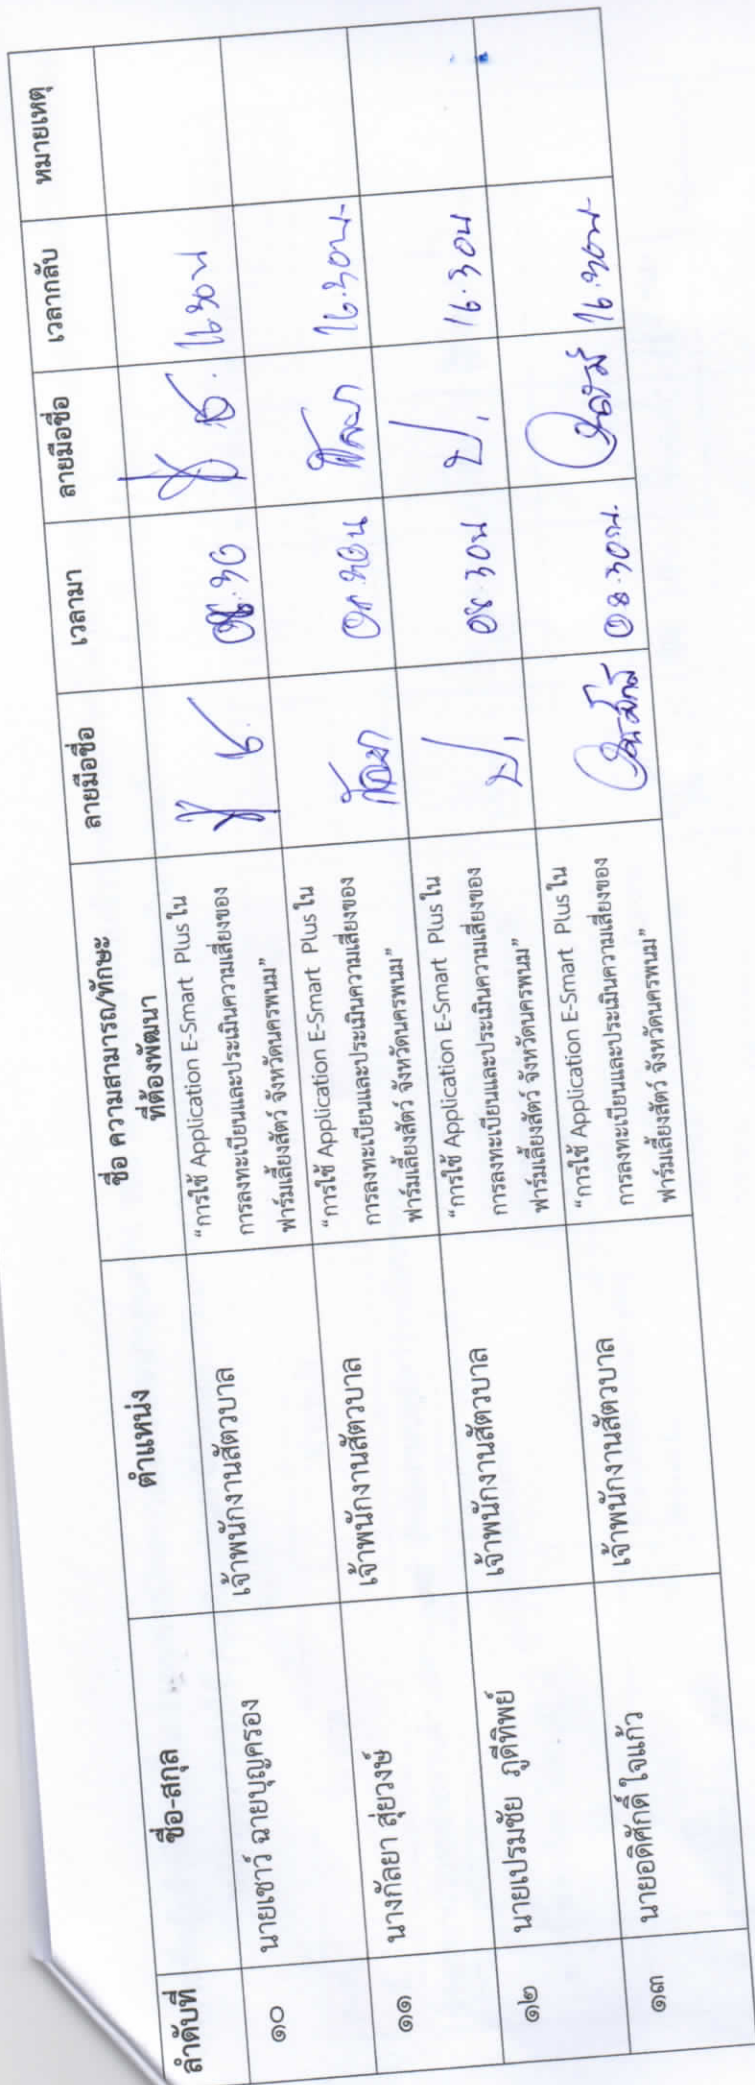 ลำดับที่ ชื่อ-สกุล ตำแหน่ง ชื่อ ความสามารถ/ทักษะ ลายมือชื่อ เวลามา ลายมือชื่อ เวลากลับ หมายเหตุ
ที่ต้องพัฒนา
๑๐ นายเชาว์ ฉายบุญครอง เจ้าพนักงานสัตวบาล "การใช้ Application E-Smart Plus ใน ช. 08.30 ช. 16.30น
การลงทะเบียนและประเมินความเสี่ยงของ
ฟาร์มเลี้ยงสัตว์ จังหวัดนครพนม"
๑๑ นางกัลยา สุ่ยวงษ์ เจ้าพนักงานสัตวบาล "การใช้ Application E-Smart Plus ใน กัลยา กัลยา 16.30น.
การลงทะเบียนและประเมินความเสี่ยงของ
ฟาร์มเลี้ยงสัตว์ จังหวัดนครพนม"
๑๒ นายเปรมชัย ภูดีทิพย์ เจ้าพนักงานสัตวบาล "การใช้ Application E-Smart Plus ใน ป. 08.30น ป. 16.30น
การลงทะเบียนและประเมินความเสี่ยงของ
ฟาร์มเลี้ยงสัตว์ จังหวัดนครพนม"
๑๓ นายอดิศักดิ์ ใจแก้ว เจ้าพนักงานสัตวบาล "การใช้ Application E-Smart Plus ใน 08.30น. 16.30น.
การลงทะเบียนและประเมินความเสี่ยงของ
ฟาร์มเลี้ยงสัตว์ จังหวัดนครพนม"